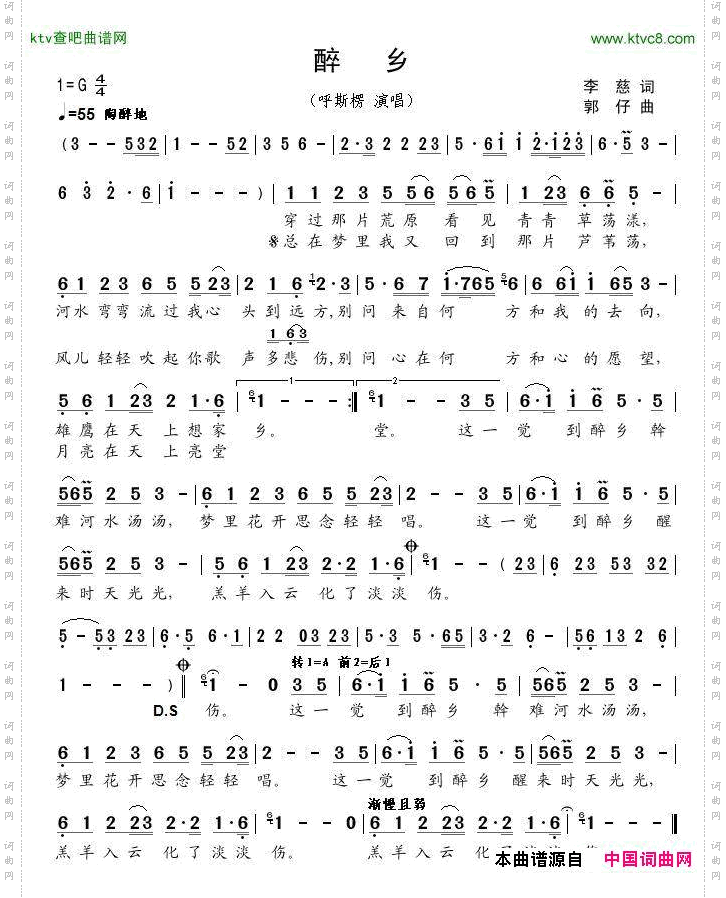 ktv查吧曲谱网
www.ktvc8.com
醉 乡
1=G 4/4
李 慈 词
(呼斯楞 演唱)
郭 仔 曲
♩=55 陶醉地
(3 - - 532 | 1 - - 52 | 3 5 6 - | 2·3 2 2 23 | 5·6i i 2·i23 | 6·5 3 - |
6 3 2·6 | i - - -) | 1 1 2 3 5 56 56 5 | 1 23 6 6 5 - |
穿过那片荒原 看见 青青 草荡漾,
𝄋总在梦里我又 回到 那片 芦苇荡,
6 1 2 3 6 5 523 | 2 1 6 2·3 | 5·6 7 i·765 | 6 6i i 65 3 - |
河水 弯弯 流过我心 头到远方,别问 来自何 方和我的去向,
1 6 3
风儿 轻轻 吹起你歌 声多悲 伤,别问 心在何 方和心的愿望,
5 6 1 23 2 1·6 | 1 - - - :| 1 - - 3 5 | 6·i i 6 5·5 |
1.
2.
雄鹰在天 上想家 乡。 堂。 这一觉 到醉乡 斡
月亮在天 上亮堂
565 2 5 3 - | 6 1 2 3 6 5 5 23 | 2 - - 3 5 | 6·i i 6 5·5 |
难河水汤汤, 梦里花开思念轻轻 唱。 这一觉 到醉乡 醒
565 2 5 3 - | 5 6 1 23 2·2 1·6 | 1 - - (23 | 6 23 53 32 |
来时天光光, 羔羊入云 化了淡淡 伤。
5 - 53 23 | 6·5 6·1 | 2 2 03 23 | 5·5·65 | 3·2 6 - | 56 13 2 6 |
转1=A 前2=后1
1 - - -) | 1 - 0 3 5 | 6·i i 6 5·5 | 565 2 5 3 - |
D.S 伤。 这一觉 到醉乡 斡 难河水汤汤,
6 1 2 3 6 5 5 23 | 2 - - 3 5 | 6·i i 6 5·5 | 565 2 5 3 - |
梦里花开思念轻轻 唱。 这一觉 到醉乡 醒来时天光光,
渐慢且弱
6 1 2 23 2·2 1·6 | 1 - - 0 | 6 1 2 23 2·2 1·6 | 1 - - - |
羔羊入云 化了淡淡 伤。 羔羊入云 化了淡淡 伤。
本曲谱源自 中国词曲网